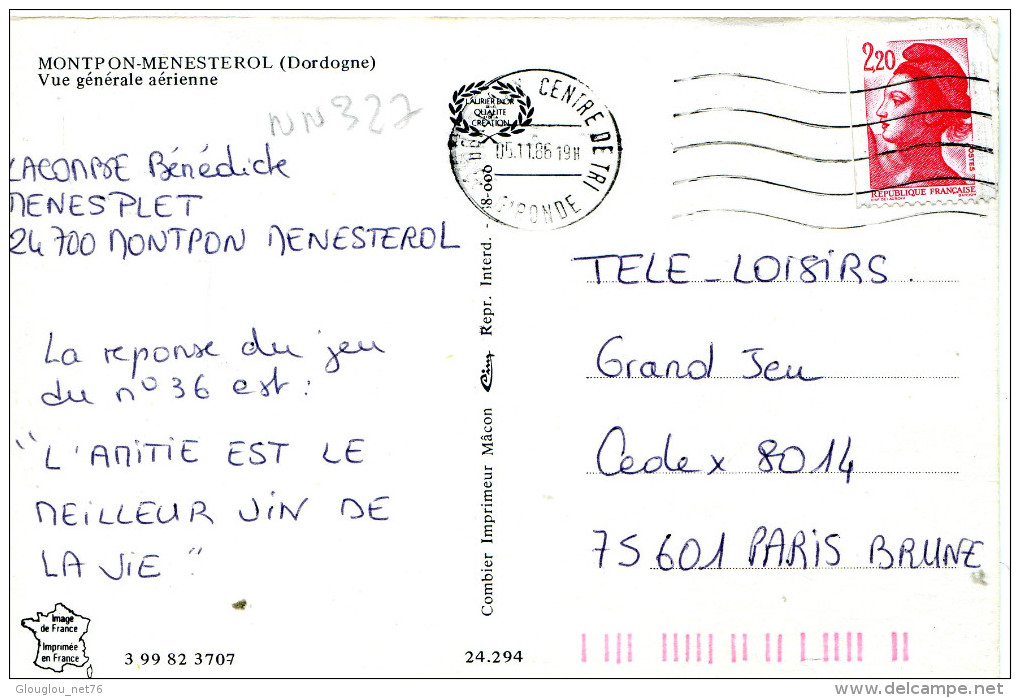 MONTPON-MENESTEROL (Dordogne)
Vue générale aérienne
NN 327
LACOMBE Bénédicte
MENESPLET
24700 MONTPON MENESTEROL
La reponse du jeu
du n° 36 est :
"L'AMITIE EST LE
MEILLEUR VIN DE
LA VIE"
Image
de France
Imprimée
en France
3 99 82 3707
Combier Imprimeur Mâcon Cim Repr. Interd. - 8-000
24.294
LAURIER D'OR
DE LA
QUALITE
CREATION
CENTRE DE TRI
05.11.86 19H
GIRONDE
2,20
POSTES
REPUBLIQUE FRANÇAISE
TELE-LOISIRS.
Grand Jeu
Cedex 8014
75601 PARIS BRUNE
Glouglou_net76
delcampe.net